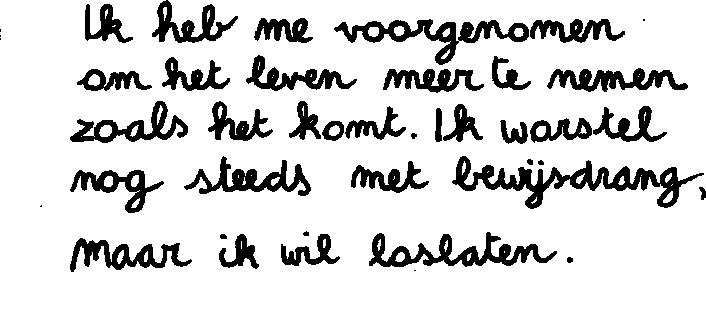 Ik heb me voorgenomen
om het leven meer te nemen
zoals het komt. Ik worstel
nog steeds met bewijsdrang,
maar ik wil loslaten.